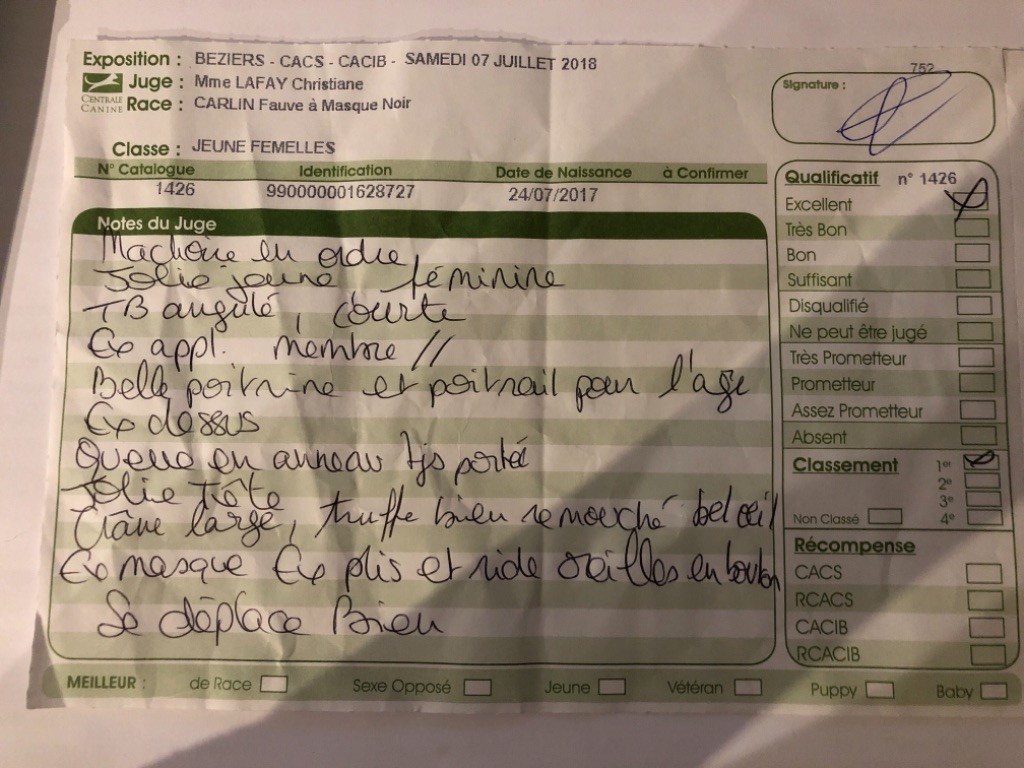 Exposition : BEZIERS - CACS - CACIB - SAMEDI 07 JUILLET 2018
Juge : Mme LAFAY Christiane
CENTRALE CANINE
Race : CARLIN Fauve à Masque Noir
752
Signature :
Classe : JEUNE FEMELLES
N° Catalogue Identification Date de Naissance à Confirmer
1426 990000001628727 24/07/2017
Notes du Juge
Machoire en ordre
Jolie jeune féminine
TB angulé, courte
Ex appl. membre //
Belle poitrine et poitrail pour l'age
Ex dessus
Queue en anneau tjs portée
Jolie Tête
Crâne large, truffe bien remouché bel oeil
Ex masque Ex plis et ride oreilles en bouton
Se déplace Bien
Qualificatif n° 1426
Excellent
Très Bon
Bon
Suffisant
Disqualifié
Ne peut être jugé
Très Prometteur
Prometteur
Assez Prometteur
Absent
Classement 1er
2e
3e
Non Classé 4e
Récompense
CACS
RCACS
CACIB
RCACIB
MEILLEUR : de Race Sexe Opposé Jeune Vétéran Puppy Baby